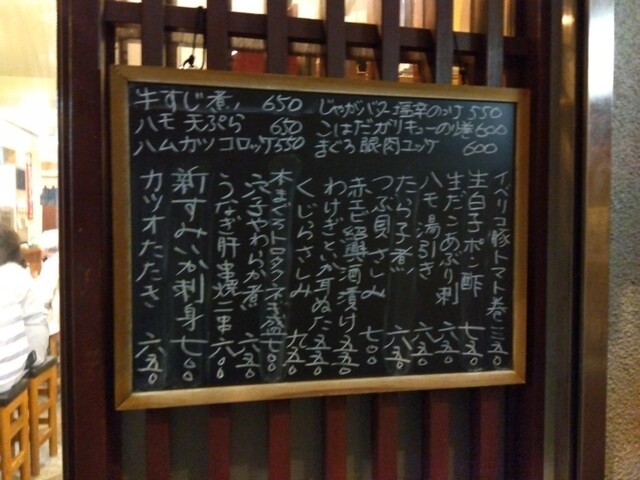 牛すじ煮 650
ハモ 天ぷら 650
ハムカツ コロッケ 550
じゃがバター塩辛のっけ 550
こはだガリキューのり巻 600
まぐろ眼肉ユッケ 600
イベリコ豚トマト巻 三五〇
生白子ポン酢 七五〇
生だこあぶり刺 六五〇
ハモ湯引き 六五〇
たら子煮 六五〇
つぶ貝さしみ 七〇〇
赤エビ紹興酒漬け 五五〇
わけぎといか耳ぬた 五五〇
くじらさしみ 九五〇
本まぐろトロタクネギ盛 七〇〇
穴子やわらか煮 六五〇
うなぎ肝串焼 二串 六〇〇
新すみいか刺身 七〇〇
カツオたたき 六五〇